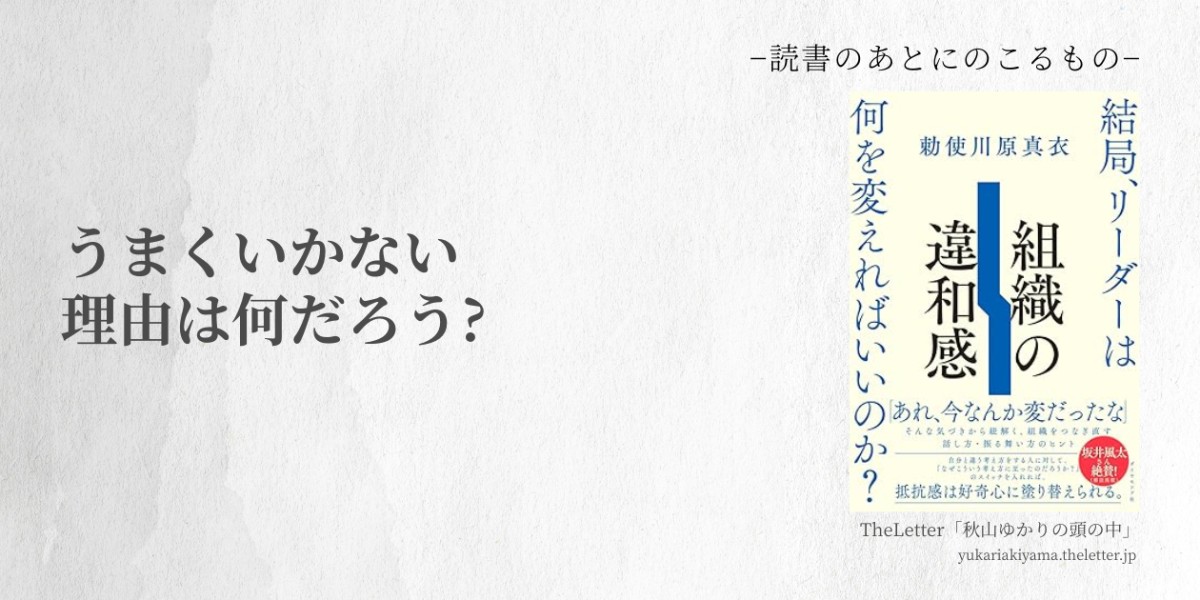 −読書のあとにのこるもの−
うまくいかない
理由は何だろう?
結局、リーダーは
何を変えればいいのか?
勅使川原真衣
組織の
違和感
「あれ、今なんか変だったな」
そんな気づきから紐解く、組織をつなぎ直す
話し方・振る舞い方のヒント
自分と違う考え方をする人に対して、
「なぜこういう考え方に至ったのだろうか?」
のスイッチを入れれば、
抵抗感は好奇心に塗り替えられる。
坂井風太
さん
絶賛!
TheLetter「秋山ゆかりの頭の中」
yukariakiyama.theletter.jp